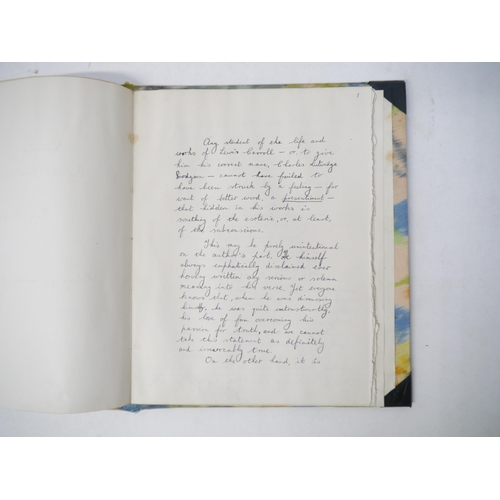 1
Any student of the life and
works of Lewis Carroll – or, to give
him his correct name, Charles Lutwidge
Dodgson – cannot have failed to
have been struck by a feeling – for
want of better word, a presentiment –
that hidden in his works is
something of the esoteric, or, at least,
of the subconscious.
This may be purely unintentional
on the author's part. He himself
always emphatically disclaimed ever
having written any serious or solemn
meaning into his verse. Yet everyone
knows that, when he was discussing
himself, he was quite untrustworthy,
his love of fun overcoming his
passion for truth, and we cannot
take this statement as definitely
and irrevocably true.
On the other hand, it is